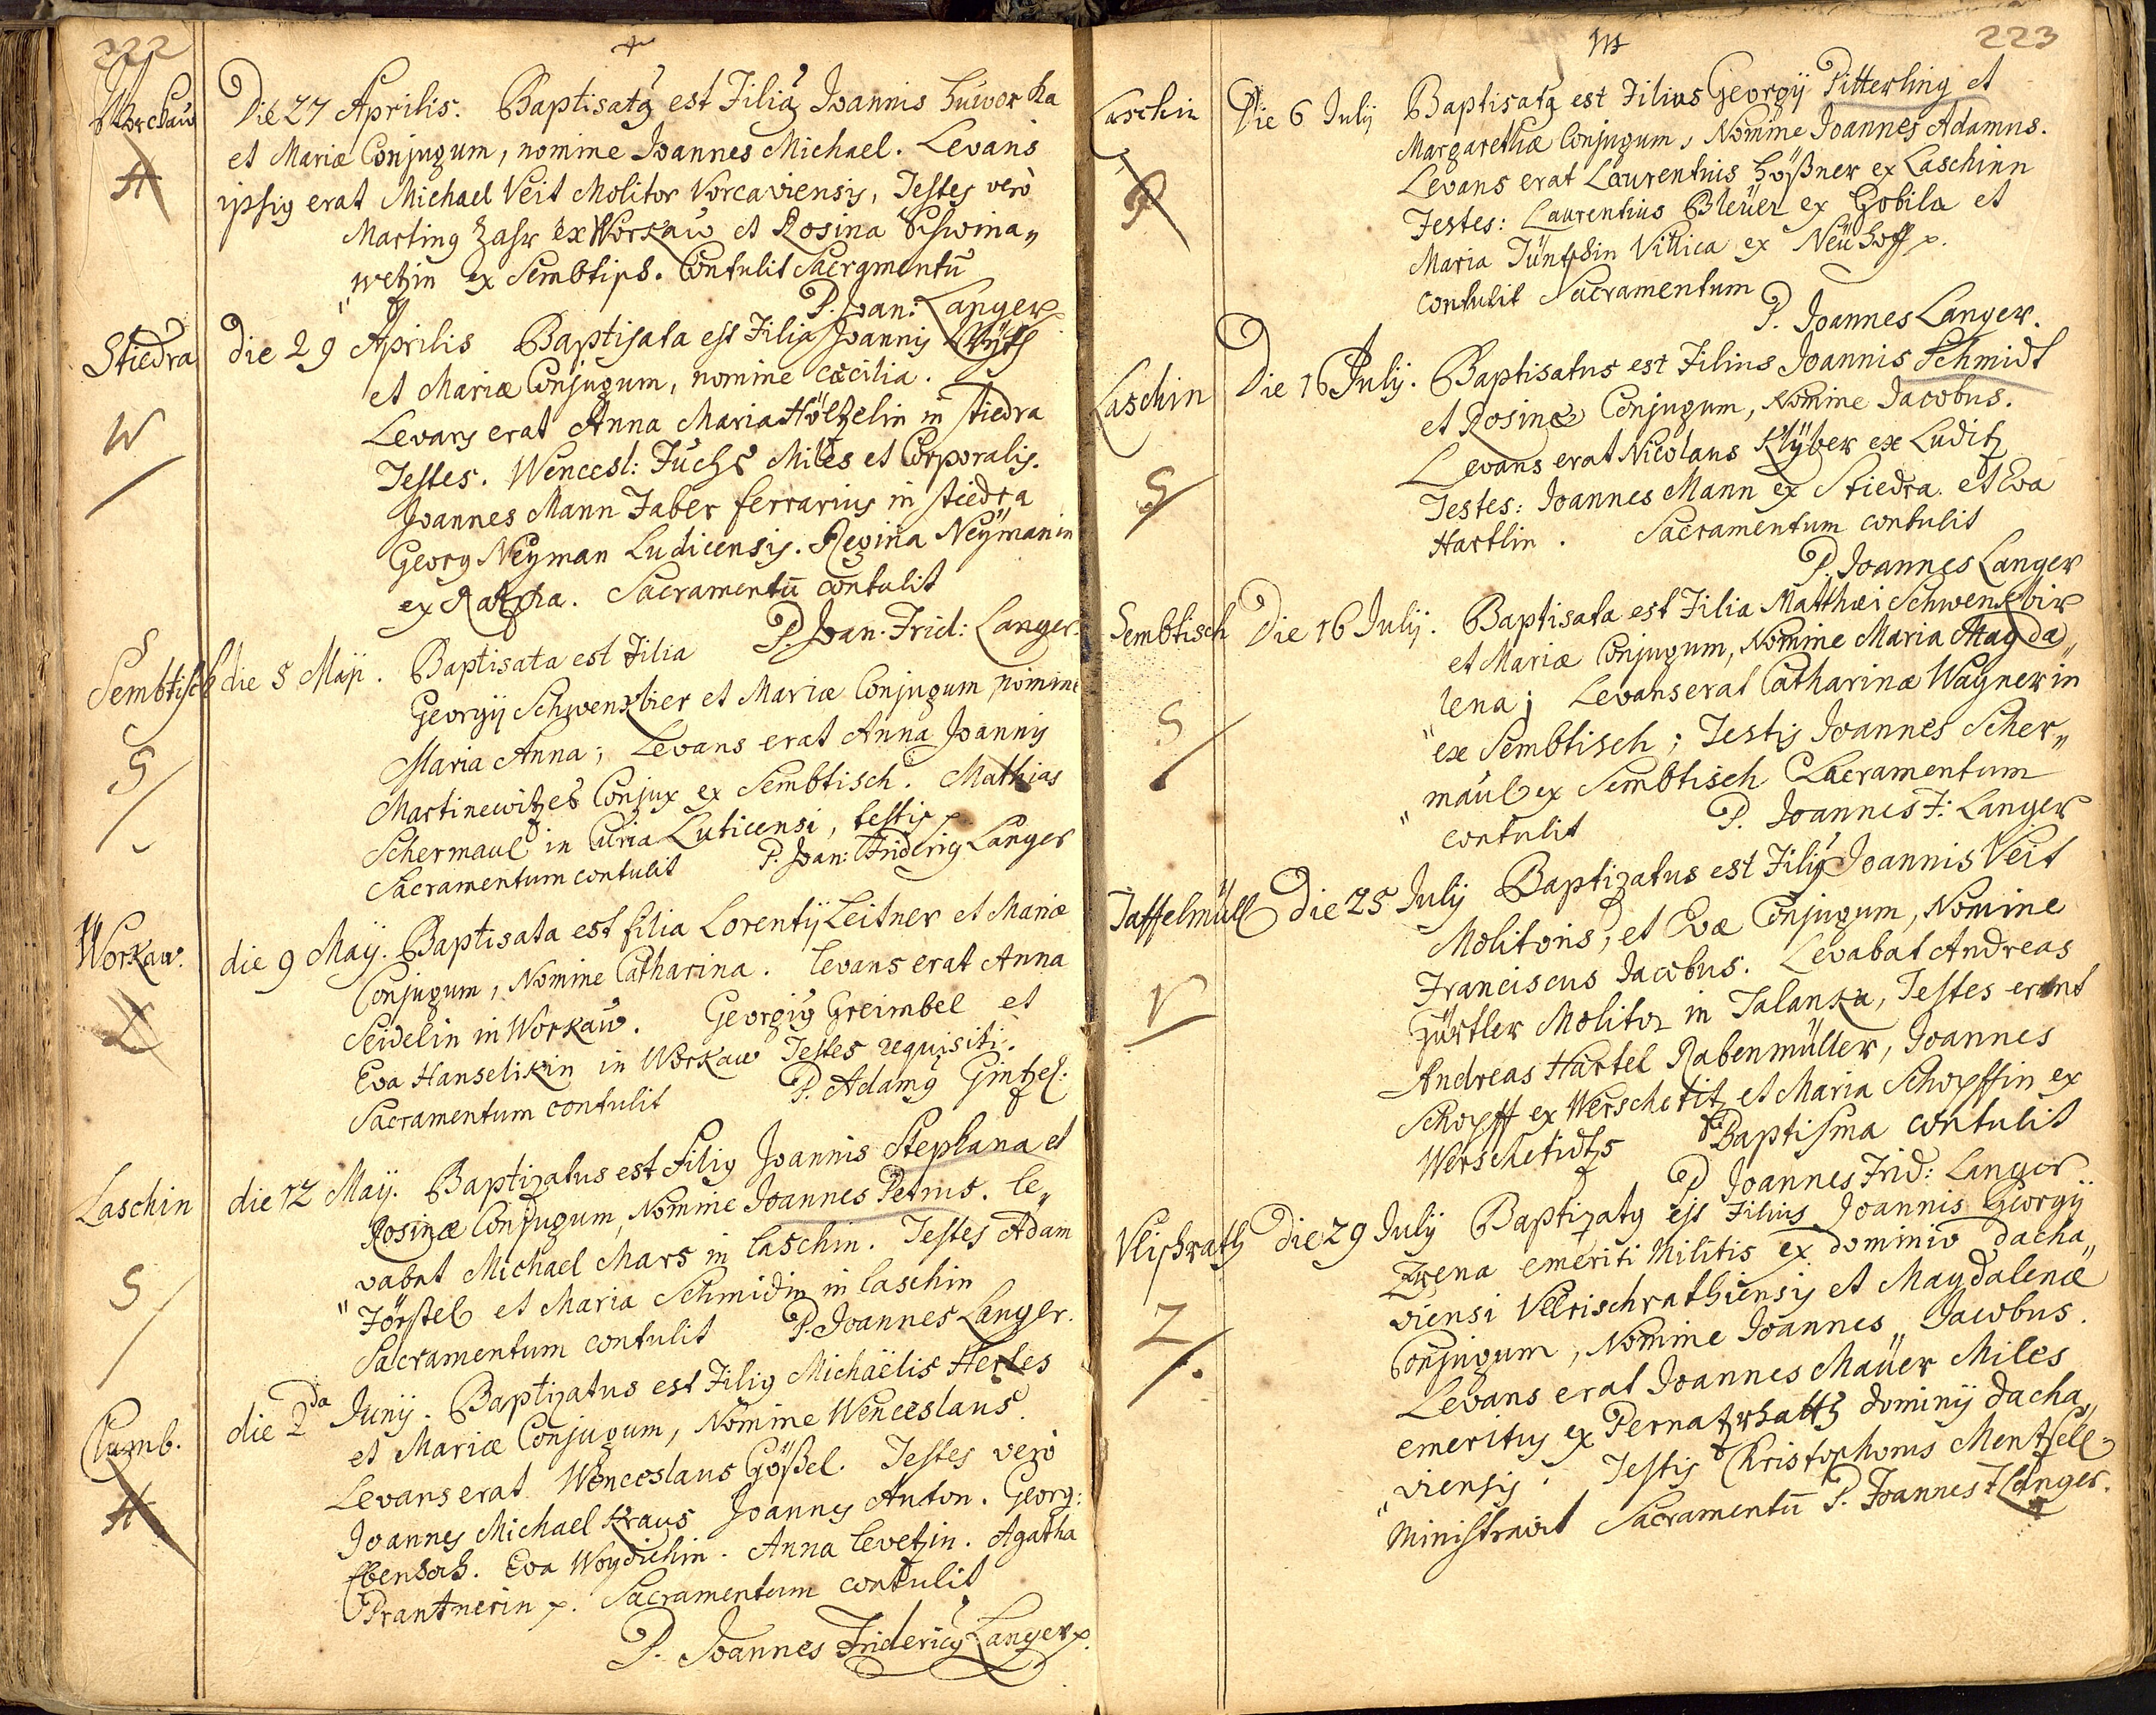 222
Worckaw
H
Die 27 Aprilis. Baptisatq est Filiq Joannis Huworka
et Mariæ Conjugum, nomine Joannes Michael. Levans
ipsiq erat Michael Veit Molitor Vorcaviensis, Testes verò
Martinq Zahr ex Workaw et Rosina Schwina„
„wetzin ex Sembtisch. Contulit Sacramentū
P. Joan: Langer
Stiedra
W
die 29 Aprilis Baptisata est Filia Joannis
et Mariæ Conjugum, nomine Cæcilia.
Levans erat Anna Maria Höltzelin in Stiedra
Testes. Wencesl: Fuchs Miles et Corporalis.
Joannes Mann Faber ferrarius in Stiedra
Georg Neÿman Ludicensis. Regina Neÿmanin
ex Ratscha. Sacramentū contulit
P. Joan. Frid: Langer.
Sembtisch
S
die 5 Maji. Baptisata est Filia
Georgij Schwenkbier et Mariæ Conjugum nomine
Maria Anna; Levans erat Anna Joannis
Martinewitzes Conjux ex Sembtisch. Mathias
Schermaul in Curia Luticensi, testis
Sacramentum contulit P. Joan: Fridericq Langer
Workaw.
L
die 9 Maÿ. Baptisata est filia Lorentij Leitner et Mariæ
Conjugum, Nomine Catharina. Levans erat Anna
Seidelin in Workaw. Georgiq Greimbel et
Eva Hanselikin in Workaw Testes requisiti.
Sacramentum contulit P. Adamq Gintzel.
Laschin
S
die 12 Maÿ. Baptizatus est Filiq Joannis Stephana et
Rosinæ Conjugum, Nomine Joannes Petrus. le„
vabat Michael Mars in laschin. Testes Adam
„Förstel et Maria Schmidin in laschin
Sacramentum contulit P. Joannes Langer.
Clumb.
H
die 2da Junij. Baptizatus est Filiq Michaëlis Herles
et Mariæ Conjugum, Nomine Wenceslaus.
Levans erat Wenceslaus Gößel. Testes verò
Joannes Michael Kraus Joannes Anton. Georg:
Ebenhoch. Eva Woydichin. Anna levetzin. Agatha
Prantnerin. Sacramentum contulit
P. Joannes Fridericq Langer
223
Laschin
P
Die 6 Julij Baptisatq est Filius Georgij Pitterling et
Margarethæ Conjugum, Nomine Joannes Adamus.
Levans erat Laurentius Hößner ex Laschinn
Testes: Laurentius Bleüer ex Gobila et
Maria Jüntschin Villica ex Neühoff
contulit Sacramentum
P. Joannes Langer.
Laschin
S
Die 16 Julij. Baptisatus est Filius Joannis Schmidt
et Rosinæ Conjugum, Nomine Jacobus.
Levans erat Nicolaus Klÿber ex Luditz
Testes: Joannes Mann ex Stiedra. et Eva
Hartlin. Sacramentum contulit
P. Joannes Langer
Sembtisch
S
Die 16 Julij. Baptisata est Filia Matthæi Schwenkbir
et Mariæ Conjugum, Nomine Maria Magda„
„lena; Levans erat Catharina Wagnerin
ex Sembtisch; Testis Joannes Scher„
„maul ex Sembtisch Sacramentum
contulit P. Joannes F: Langer
Taffelmüll
V
Die 25 Julij Baptizatus est Filiq Joannis Veit
Molitoris, et Evæ Conjugum, Nomine
Franciscus Jacobus. Levabat Andreas
Zürtler Molitor in Talanka, Testes erant
Andreas Hartel Rabenmüller, Joannes
Schopff ex Werschetitz et Maria Schopffin ex
Werschetidts Baptisma contulit
P Joannes Frid: Langer
Vlischrath
Z
Die 29 Julij Baptizatq est Filius Joannis Georgij
Zwena emeriti Militis ex dominio dacha„
viensi Vlrischrathiensis et Magdalenæ
Conjugum, Nomine Joannes Jacobus.
Levans erat Joannes Maüer Miles
emeritus ex Pernatzhatts dominij dacha„
„viensis. Testis Christophorus Mentzell
ministravit Sacramentū P. Joannes F Langer.